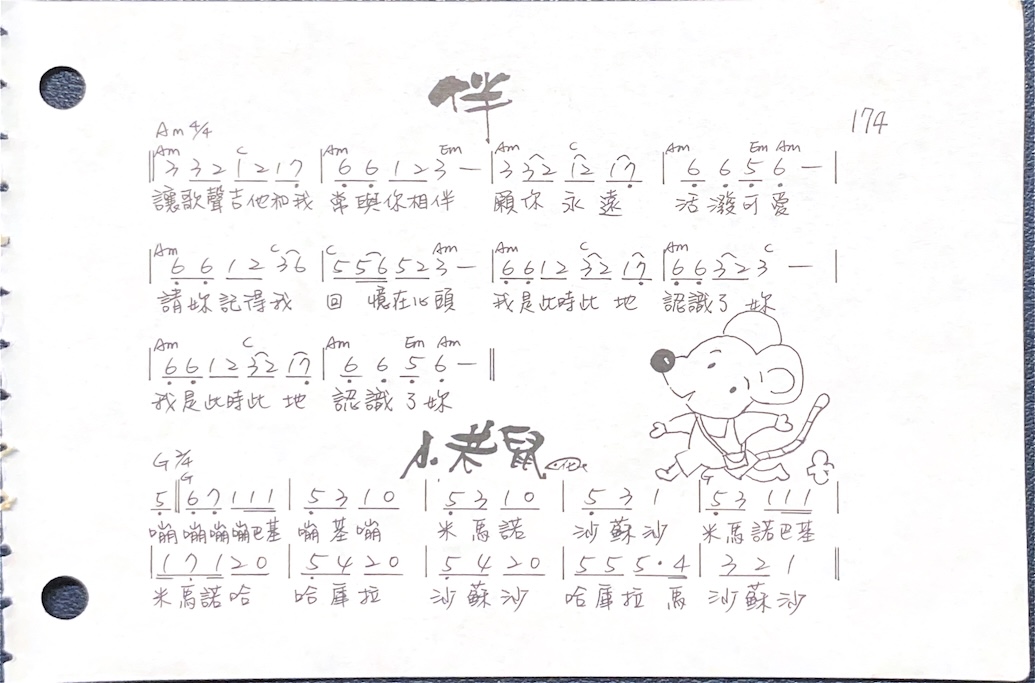 伴
174
Am 4/4
Am C Am Em Am C Am Em Am
‖3 3 2 1 2 1 7 | 6 6 1 2 3 — | 3 3 2 1 2 1 7 | 6 6 5 6 — |
讓歌聲吉他和我 常與你相伴 願你永遠 活潑可愛
Am C C Am Am C Am C
| 6 6 1 2 3 6 | 5 5 6 5 2 3 — | 6 6 1 2 3 2 1 7 | 6 6 3 2 3 — |
請妳記得我 回憶在心頭 我是此時此地 認識了妳
Am C Am Em Am
| 6 6 1 2 3 2 1 7 | 6 6 5 6 — ‖
我是此時此地 認識了妳
小老鼠
G 2/4
G G
5 ‖ 6 7 1 1 1 | 5 3 1 0 | 5 3 1 0 | 5 3 1 | 5 3 1 1 1 |
嘣嘣嘣嘣巴基 嘣基嘣 米馬諾 沙蘇沙 米馬諾巴基
| 1 7 1 2 0 | 5 4 2 0 | 5 4 2 0 | 5 5 5 · 4 | 3 2 1 ‖
米馬諾哈 哈庫拉 沙蘇沙 哈庫拉馬 沙蘇沙